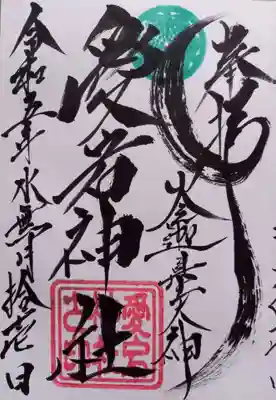 奉拝
火産霊大神
愛宕神社
令和五年水無月拾壱日